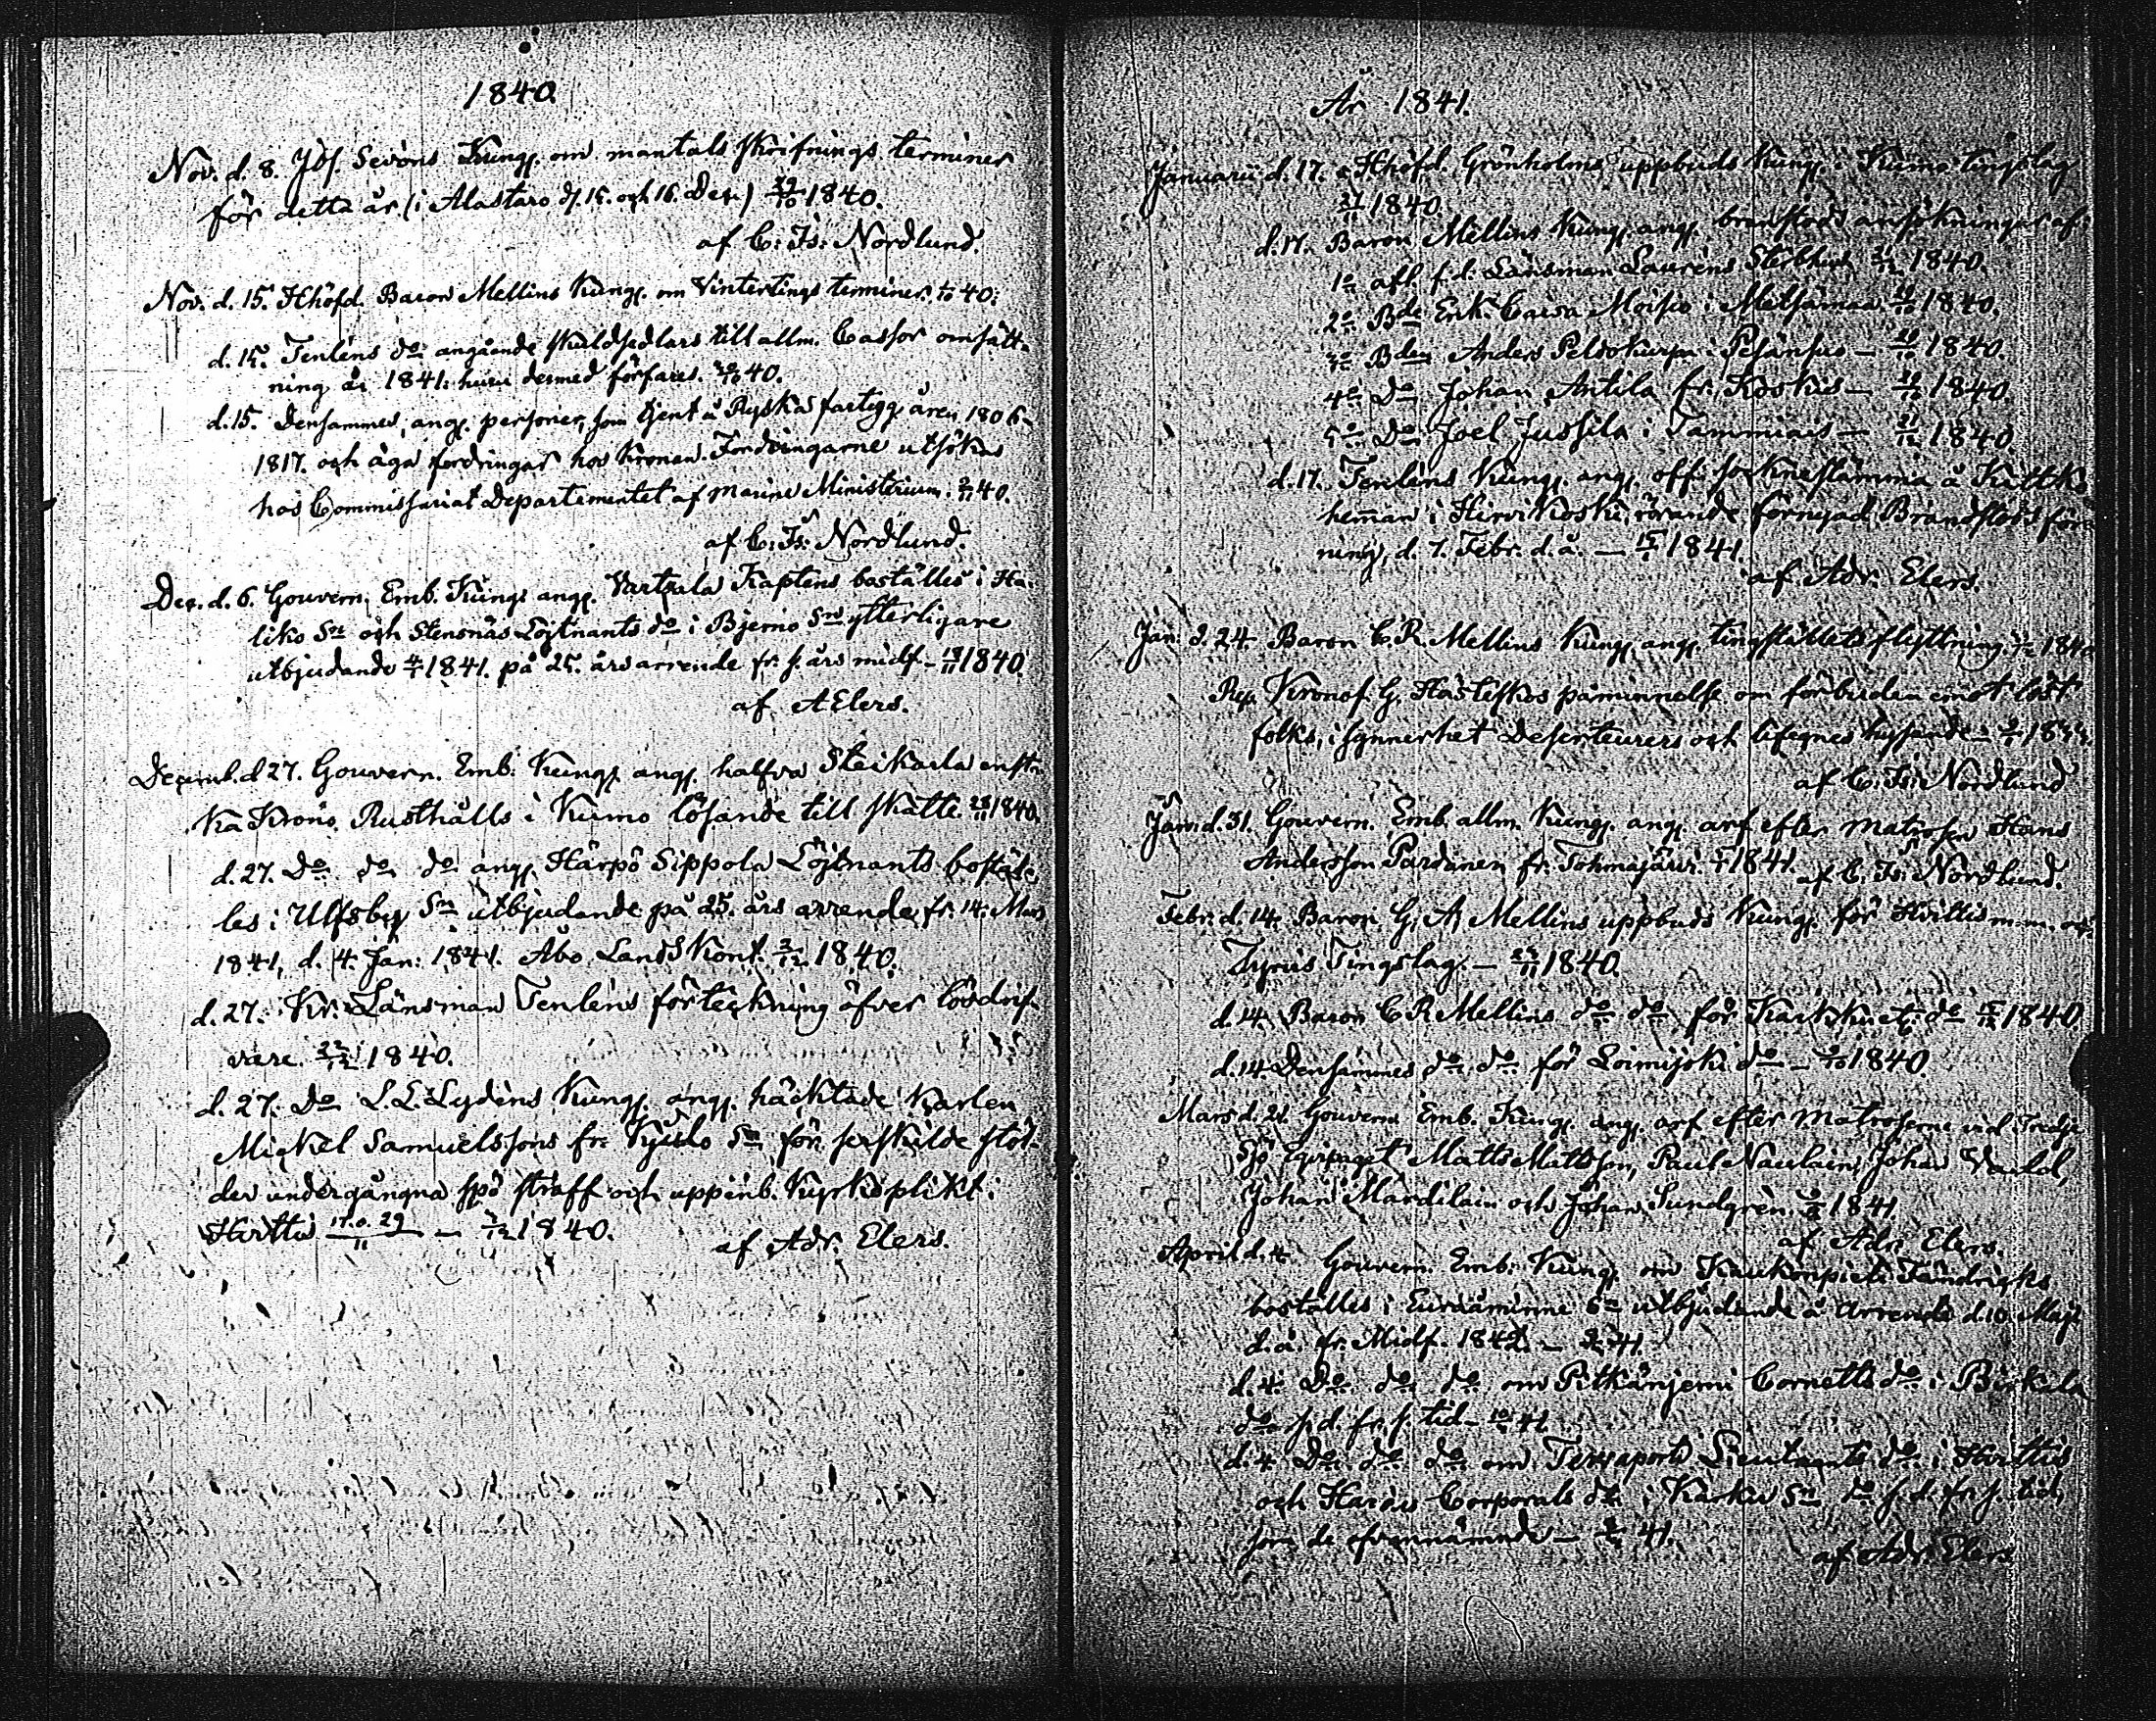 1840.
Nov. d. 8. Jos. Sevons Kungj. om mantals skrifnings terminer
för detta år (i Alastaro d. 15. och 16. Dec.) 29/10 1840.
af C: Is: Nordlund.
Nov. d. 15. Hhöfd. Baron Mellins Kungj. om Vintertings terminer. 40:
d. 15. Tenlens do: angående skuldsedlars till allm. Cassor omsätt-
ning år 1841: huru dermed förfares. 40.
d. 15. Densammes, angj. personer, som tjent å Ryska fartyg åren 1806-
1817. och äga fordringar hos Kronan. Fordringarne utsökas
hos Commissariat Departementet af Marine Ministerium. 2/11 40.
af C: Is: Nordlund.
Dec. d. 6. Gouvern. Emb. Kungj. angj. Vartsala Kaptens boställes i Ha-
liko Sn och Stensnäs Löjtnants do i Bjerno Sn ytterligare
utbjudande 4/1 1841. på 25. års arrende fr. s. års midf. - 18/11 1840.
af A Elers.
Decemb. d 27. Gouvern. Emb. Kungj. angj. halfva Steikarla
ka Krono Rusthålls i Kumo lösande till skatte. 28/11 1840.
d. 27. Do do do angj. Härpö Sippola Löjtnants bostäl-
les i Ulfsby Sn utbjudande på 25. års arrende, fr. 14. Mars
1841, d. 4. Jan: 1841. Åbo Lands Kont. 1840.
d. 27. Kr: Länsman Tenlens förteckning öfver lösdrif-
vare. 22/12 1840.
d. 27. Do L. L. Lydens Kungj. angj. häktade Karlen
Mickel Samuelssons fr. Kjulo Sn för serskilde stöl-
der undergångna spö straff och uppenb. Kyrkoplikt i
Hvittis 17. o. 29/11 - 1840.
af Adr. Elers.
År 1841.
Januarii d. 17. Hhöfd. Grönholms uppbuds Kungj. i Kumo tingslag
1840.
d. 17. Baron Mellins Kungj. angj. brandstods ansökningar af:
1o afl. f. d. Länsman Laurens Stbhus 1840.
2o Bde Erik Caisa Moisio i Metsämaa 1840.
3o Bden Anders Peldokurpa i 1840.
4o Do Johan Antila fr. Koskis - 1840.
5o Do Joel Jussila i Tammiais - 21/12 1840
d. 17. Tenlens Kungj. angj. off. socknestämma å
hemman i Hirvikoski, rörande förnyad Brandstods för-
ning, d. 7. Febr. d. å. - 15/1 1841.
af Adr. Elers.
Jan: d. 24. Baron C. R. Mellins Kungj. angj. tingställets flyttning. 1840
Rep. Kronof. G. Hästeskos påminnelse om förbuden emot löst
folks, i synnerhet Deserteurers och lifegnes hysande -
af C. Is: Nordlund
Jan: d. 31. Gouvern. Emb. allm. Kungj. angj. arf efter Matrosen Hans
Andersson Pardanen fr. Tohmajärvi. 1841. af C. Is: Nordlund.
Febr: d. 14. Baron G. A. Mellins uppbuds Kungj. för Hvittis m. m. och
Tyrvis Tingslag. - 1840.
d. 14. Baron C R Mellins do do för do 15/12 1840
d. 14 Densammes do do för Loimijoki do - 1840
Mars d. 21. Gouvern. Emb. Kungj. angj. arf efter Matroserne vid Tredje
Sjö Eqvipaget Matts Mattsson, Paul Naulain, Johan
Johan Mardilain och Johan Sundgren. 1841.
af Adr. Elers.
April d. 4. Gouvern. Emb. Kungj. om Fändricks
boställes i Euraåminne Sn utbjudande å arrende d. 10. Maji
d. å. fr. Midf. 1842. - 41.
d. 4. Do do do om Pitkänjemi Cornetts do i Birkala
do s. d. fr. s. tid - 41
d. 4. Do do do om Lieutnants do i Hvittis
och Corporals do i Karku Sn do s. d. fr. s. tid,
som de ofvannämnde - 41.
af Adr. Elers